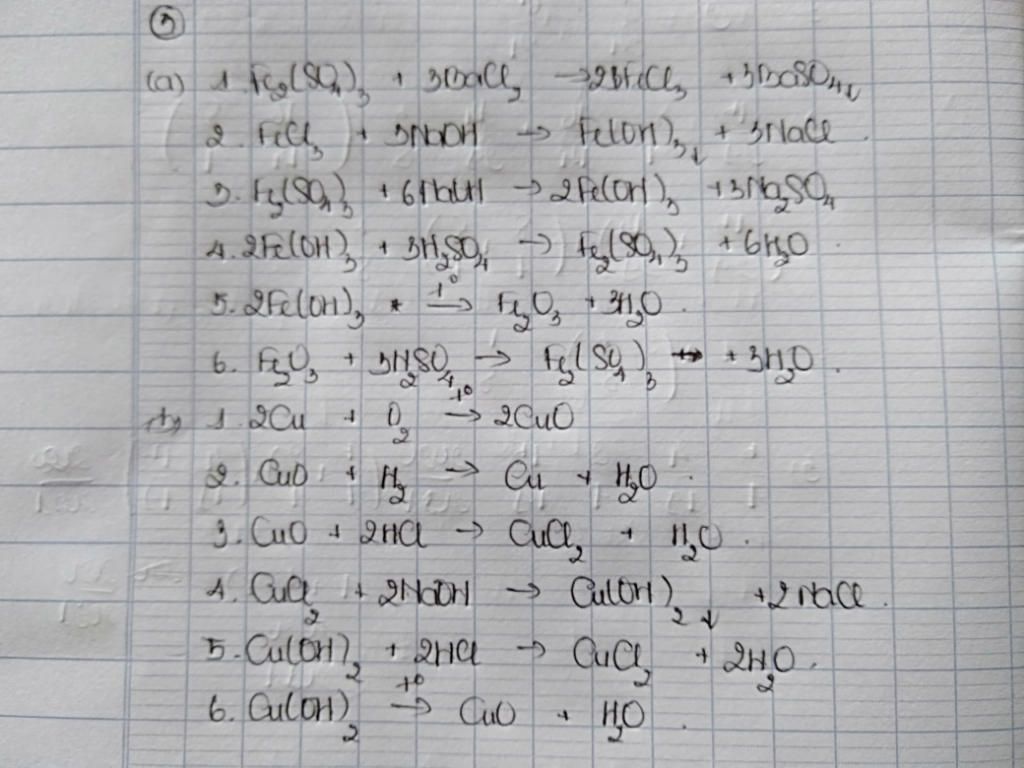 ③
(a) 1. Fe₂(SO₄)₃ + 3BaCl₂ → 2FeCl₃ + 3BaSO₄↓
2. FeCl₃ + 3NaOH → Fe(OH)₃↓ + 3NaCl.
3. Fe₂(SO₄)₃ + 6NaOH → 2Fe(OH)₃ + 3Na₂SO₄
4. 2Fe(OH)₃ + 3H₂SO₄ → Fe₂(SO₄)₃ + 6H₂O.
5. 2Fe(OH)₃ t° → Fe₂O₃ + 3H₂O.
6. Fe₂O₃ + 3H₂SO₄ → Fe₂(SO₄)₃ + 3H₂O.
1. 2Cu + O₂ t° → 2CuO
2. CuO + H₂ → Cu + H₂O.
3. CuO + 2HCl → CuCl₂ + H₂O.
4. CuCl₂ + 2NaOH → Cu(OH)₂↓ + 2NaCl.
5. Cu(OH)₂ + 2HCl → CuCl₂ + 2H₂O.
6. Cu(OH)₂ t° → CuO + H₂O.